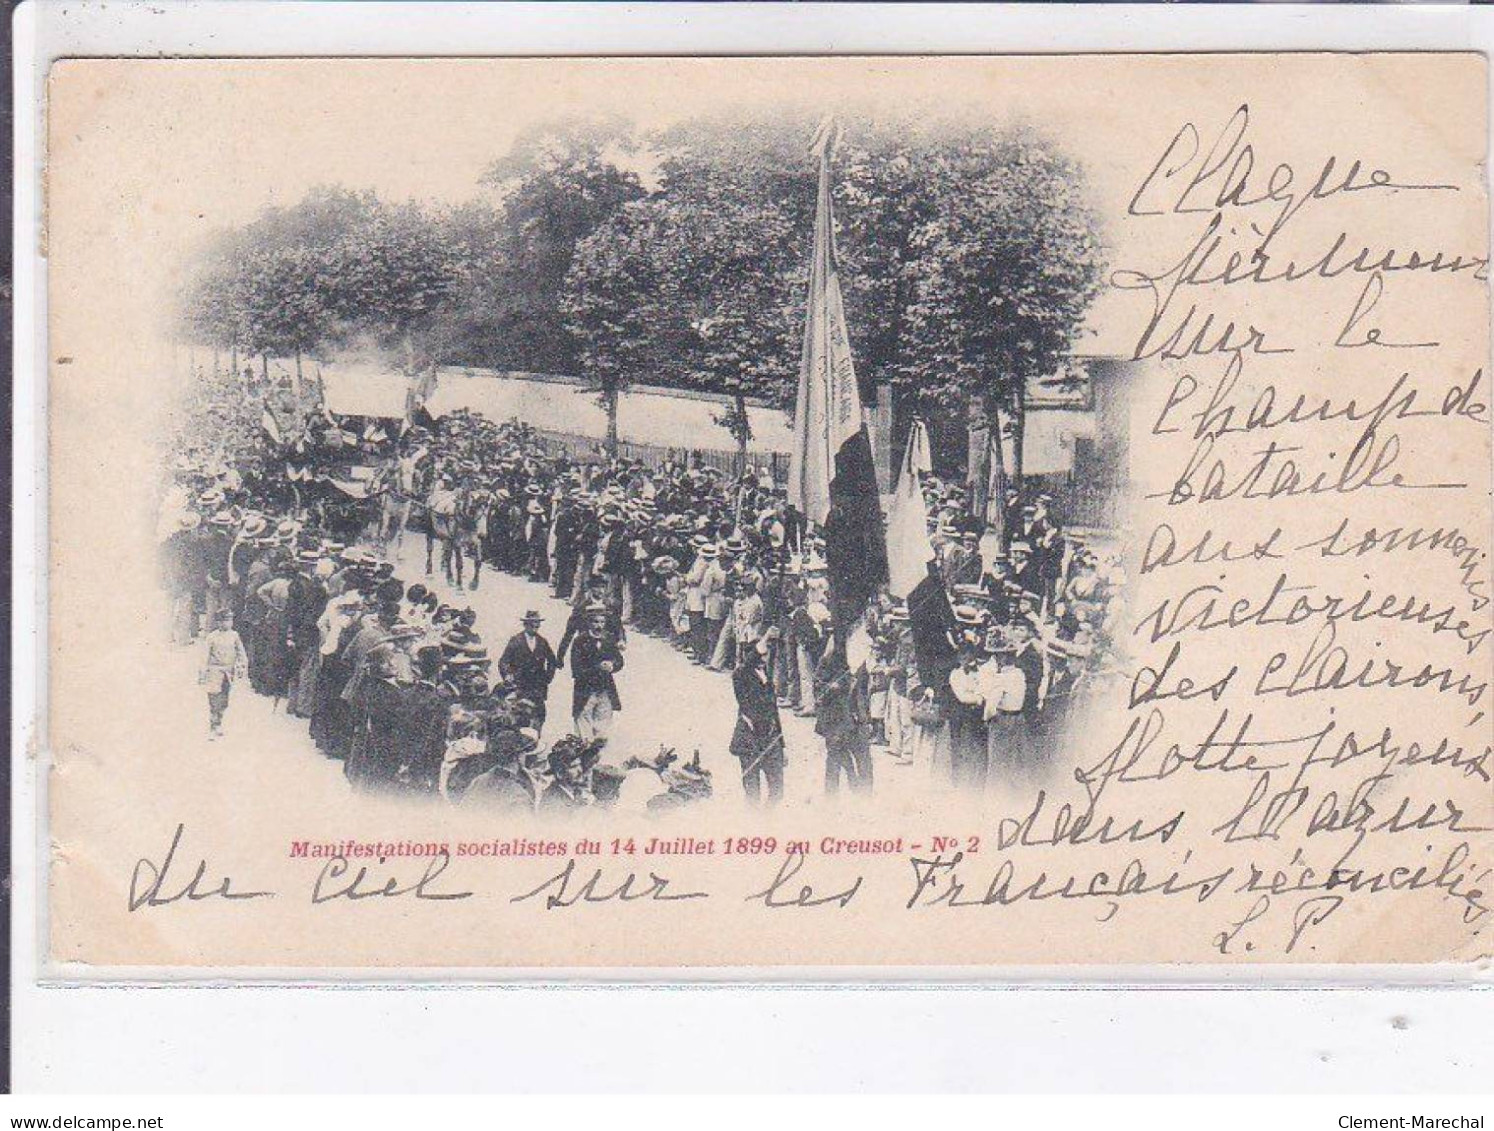 Claque
fièrement
sur le
champ de
bataille
aux sonneries
victorieuses
des clairons,
flotte joyeux
dans l'azur
Manifestations socialistes du 14 Juillet 1899 au Creusot - Nº 2
du ciel sur les Français réconciliés.
L. P.
delcampe.net
Clement-Marechal